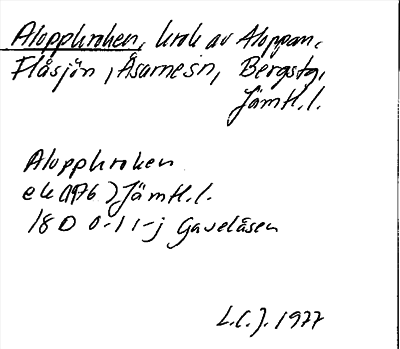 Aloppkroken, krok av Aloppan,
Flåsjön, Åsarnesn, Bergstg,
Jämtl.l.
Aloppkroken
ek (1976) Jämtl.l.
18 D 0-1 i-j Gaveåsen
L.C.J. 1977